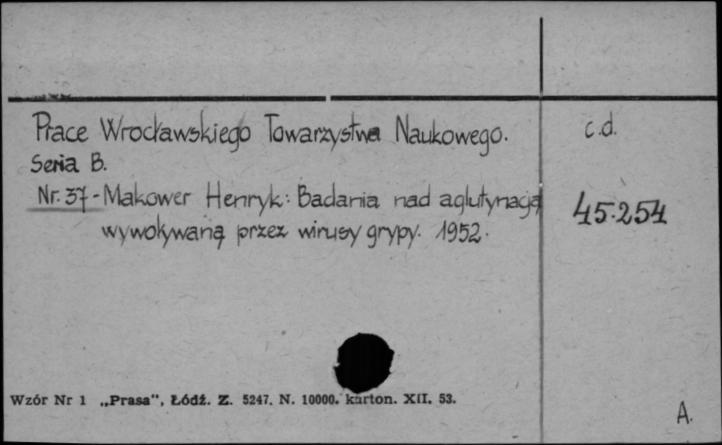 Prace Wrocławskiego Towarzystwa Naukowego.
c.d.
Seria B.
Nr. 37 - Makower Henryk: Badania nad aglutynacją
45.254
wywoływaną przez wirusy grypy. 1952.
Wzór Nr 1 „Prasa”, Łódź. Z. 5247. N. 10000. karton. XII. 53.
A.